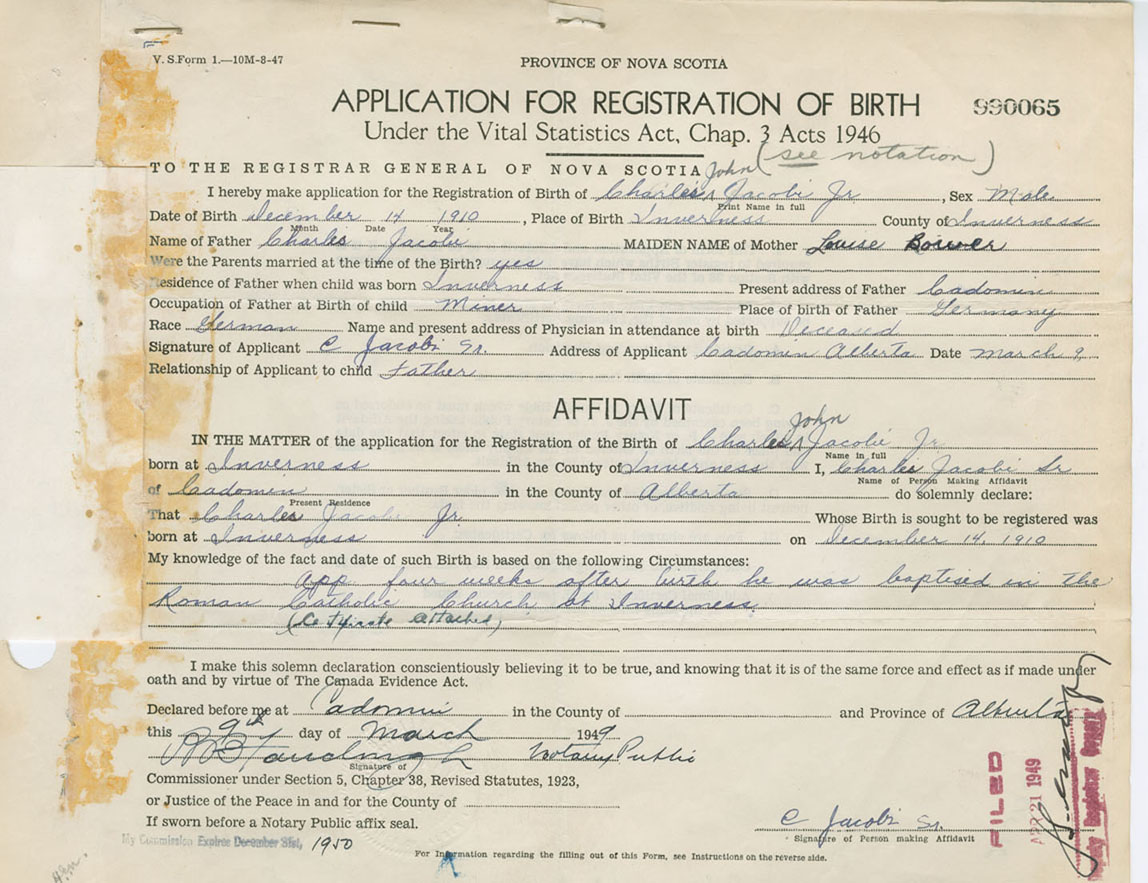 V. S. Form 1.—10M-8-47
PROVINCE OF NOVA SCOTIA
APPLICATION FOR REGISTRATION OF BIRTH
990065
Under the Vital Statistics Act, Chap. 3 Acts 1946
(see notation)
TO THE REGISTRAR GENERAL OF NOVA SCOTIA
John
I hereby make application for the Registration of Birth of Charles Jacobi Jr, Sex Male
Print Name in full
Date of Birth December 14 1910, Place of Birth Inverness County of Inverness
Month Date Year
Name of Father Charles Jacobi MAIDEN NAME of Mother Louise Bower
Were the Parents married at the time of the Birth? yes
Residence of Father when child was born Inverness Present address of Father Cadomin
Occupation of Father at Birth of child Miner Place of birth of Father Germany
Race German Name and present address of Physician in attendance at birth Deceased
Signature of Applicant C Jacobi Sr. Address of Applicant Cadomin Alberta Date March 9,
Relationship of Applicant to child Father
AFFIDAVIT
John
IN THE MATTER of the application for the Registration of the Birth of Charles Jacobi Jr
Name in full
born at Inverness in the County of Inverness I, Charles Jacobi Sr
Name of Person Making Affidavit
of Cadomin in the County of Alberta do solemnly declare:
Present Residence
That Charles Jacobi Jr. Whose Birth is sought to be registered was
born at Inverness on December 14, 1910
My knowledge of the fact and date of such Birth is based on the following Circumstances:
App four weeks after birth he was baptised in the
Roman Catholic Church at Inverness,
(Certificate attached)
I make this solemn declaration conscientiously believing it to be true, and knowing that it is of the same force and effect as if made under
oath and by virtue of The Canada Evidence Act.
Declared before me at Cadomin in the County of and Province of Alberta
this 9th day of March 1949
Notary Public
Signature of
Commissioner under Section 5, Chapter 38, Revised Statutes, 1923,
or Justice of the Peace in and for the County of
If sworn before a Notary Public affix seal.
C Jacobi Sr.
Signature of Person making Affidavit
My Commission Expires December 31st, 1950
For Information regarding the filling out of this Form, see Instructions on the reverse side.
FILED
APR 21 1949
Deputy Registrar General